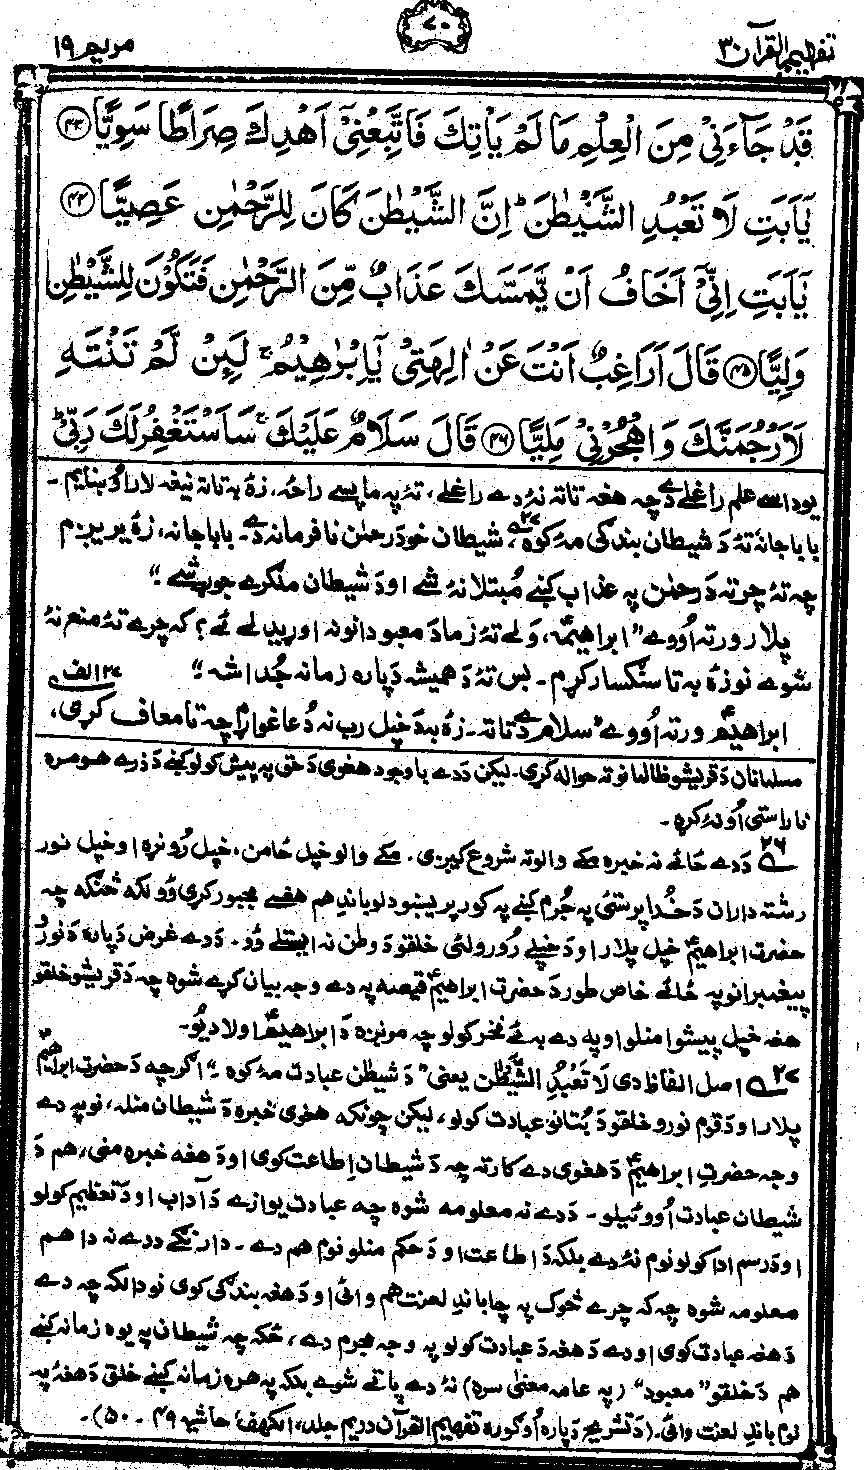 تفهیم القرآن ۳
۷۰
مریم ۱۹
قَدْ جَآءَنِیْ مِنَ الْعِلْمِ مَا لَمْ یَاْتِكَ فَاتَّبِعْنِیْٓ اَهْدِكَ صِرَاطًا سَوِیًّا ﴿۴۳﴾
یٰۤاَبَتِ لَا تَعْبُدِ الشَّیْطٰنَ ؕ اِنَّ الشَّیْطٰنَ كَانَ لِلرَّحْمٰنِ عَصِیًّا ﴿۴۴﴾
یٰۤاَبَتِ اِنِّیْٓ اَخَافُ اَنْ یَّمَسَّكَ عَذَابٌ مِّنَ الرَّحْمٰنِ فَتَكُوْنَ لِلشَّیْطٰنِ
وَلِیًّا ﴿۴۵﴾ قَالَ اَرَاغِبٌ اَنْتَ عَنْ اٰلِهَتِیْ یٰۤاِبْرٰهِیْمُ ۚ لَىِٕنْ لَّمْ تَنْتَهِ
لَاَرْجُمَنَّكَ وَاهْجُرْنِیْ مَلِیًّا ﴿۴۶﴾ قَالَ سَلٰمٌ عَلَیْكَ ۚ سَاَسْتَغْفِرُ لَكَ رَبِّیْ ؕ
یو داسے علم راغلے دے چه هغه تاته نهٔ دے راغلے، تهٔ په ما پسے راځه، زهٔ به تاته نیغه لار اوښایم۔
بابا جانه تهٔ دَ شیطان بندګی مهٔ کوه۲۷، شیطان خو دَ رحمٰن نافرمانه دے۔ بابا جانه، زهٔ یریږم
چه تهٔ چرته دَ رحمٰن په عذاب کښے مُبتلا نهٔ شے او دَ شیطان ملګرے جوړ شے۔"
پلار ورته اُووے "ابراهیمهؑ، ولے تهٔ زما دَ معبودانو نه اوړیدلے ئے؟ که چرے تهٔ منع نهٔ
شوے نو زهٔ به تا سنګسار کړم۔ بس تهٔ دَ همیشه دَپاره زما نه جُدا شه۔"
ابراهیمؑ ورته اُووے "سلام دے په تا۔ زهٔ به دَ خپل رب نه دُعا غواړم چه تا معاف کړی، ۲۷ الف
مسلمانان دَ قریشو ظالمانو ته حواله کړی۔ لیکن دَدے باوجود هغوی دَ حق په پیش کولو کښے دَ ذرے هومره
ناراستی اُونهٔ کړه۔
۲۶ دَدے ځائے نه خبره مکے والو ته شروع کیږی۔ مکے والو خپل ځامن، خپل رُوڼره او خپل نور
رشته داران دَ خُدا پرستئ په جُرم کښے په کور پریښودلو باندِ هم هغسے مجبور کړی وُو لکه څنګه چه
حضرت ابراهیمؑ خپل پلار او دَ خپلے رُورولئ خلقو دَ وطن نه ایستلے وُو۔ دَدے غرض دَپاره دَ نورُ
پیغمبرانو په ځائے خاص طور دَ حضرت ابراهیمؑ قیصه په دے وجه بیان کړے شوه چه دَ قریشو خلقو
هغه خپل پیشوا منلو او په دے به ئے فخر کولو چه مونږه دَ ابراهیمؑ اولاد یُو۔
۲۷ اصل الفاظ دی لَا تَعْبُدِ الشَّیْطٰنَ یعنی "دَ شیطٰن عبادت مهٔ کوه"۔ اګرچه دَ حضرت ابراهیمؑ
پلار او دَ قوم نورو خلقو دَ بُتانو عبادت کولو، لیکن چونکه هغوی خبره دَ شیطان منله، نو په دے
وجه حضرتِ ابراهیمؑ دَ هغوی دے کار ته چه دَ شیطان اِطاعت کوی او دَ هغه خبره منی، هم دَ
شیطان عبادت اُووئیلو۔ دَدے نه معلومه شوه چه عبادت یوازے دَ آداب او دَ تعظیم کولو
او دَ رسم ادا کولو نوم نهٔ دے بلکه دَ اِطاعت او دَ حکم منلو نوم هم دے۔ دارنګے ددے نه دا هم
معلومه شوه چه که چرے څوک په چا باندِ لعنت هم وائی او دَ هغه بندګی کوی نو دا لکه چه دے
دَ هغه عبادت کوی او دے دَ هغه دَ عبادت کولو په وجه مجرم دے، ځکه چه شیطان په یوه زمانه کښے
هم دَ خلقو "معبود" (په عامه معنیٰ سره) نهٔ دے پاتے شوے بلکه په هره زمانه کښے خلق دَ هغهٔ په
نوم باندِ لعنت وائی۔ (دَ تشریح دَپاره اُوګوره تفهیم القرآن دریم جلد، الکهف حاشیه ۴۹ ۔ ۵۰)۔